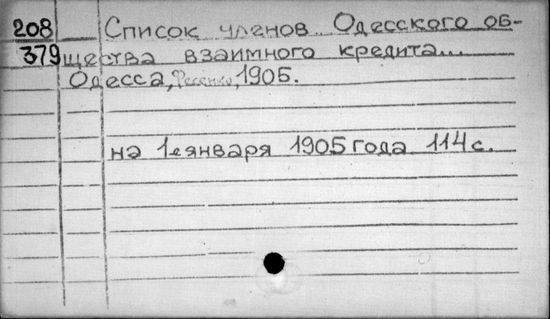 208 Список членов Одесского об-
379 щества взаимного кредита...
Одесса, 1905.
на 1е января 1905 года 114 с.